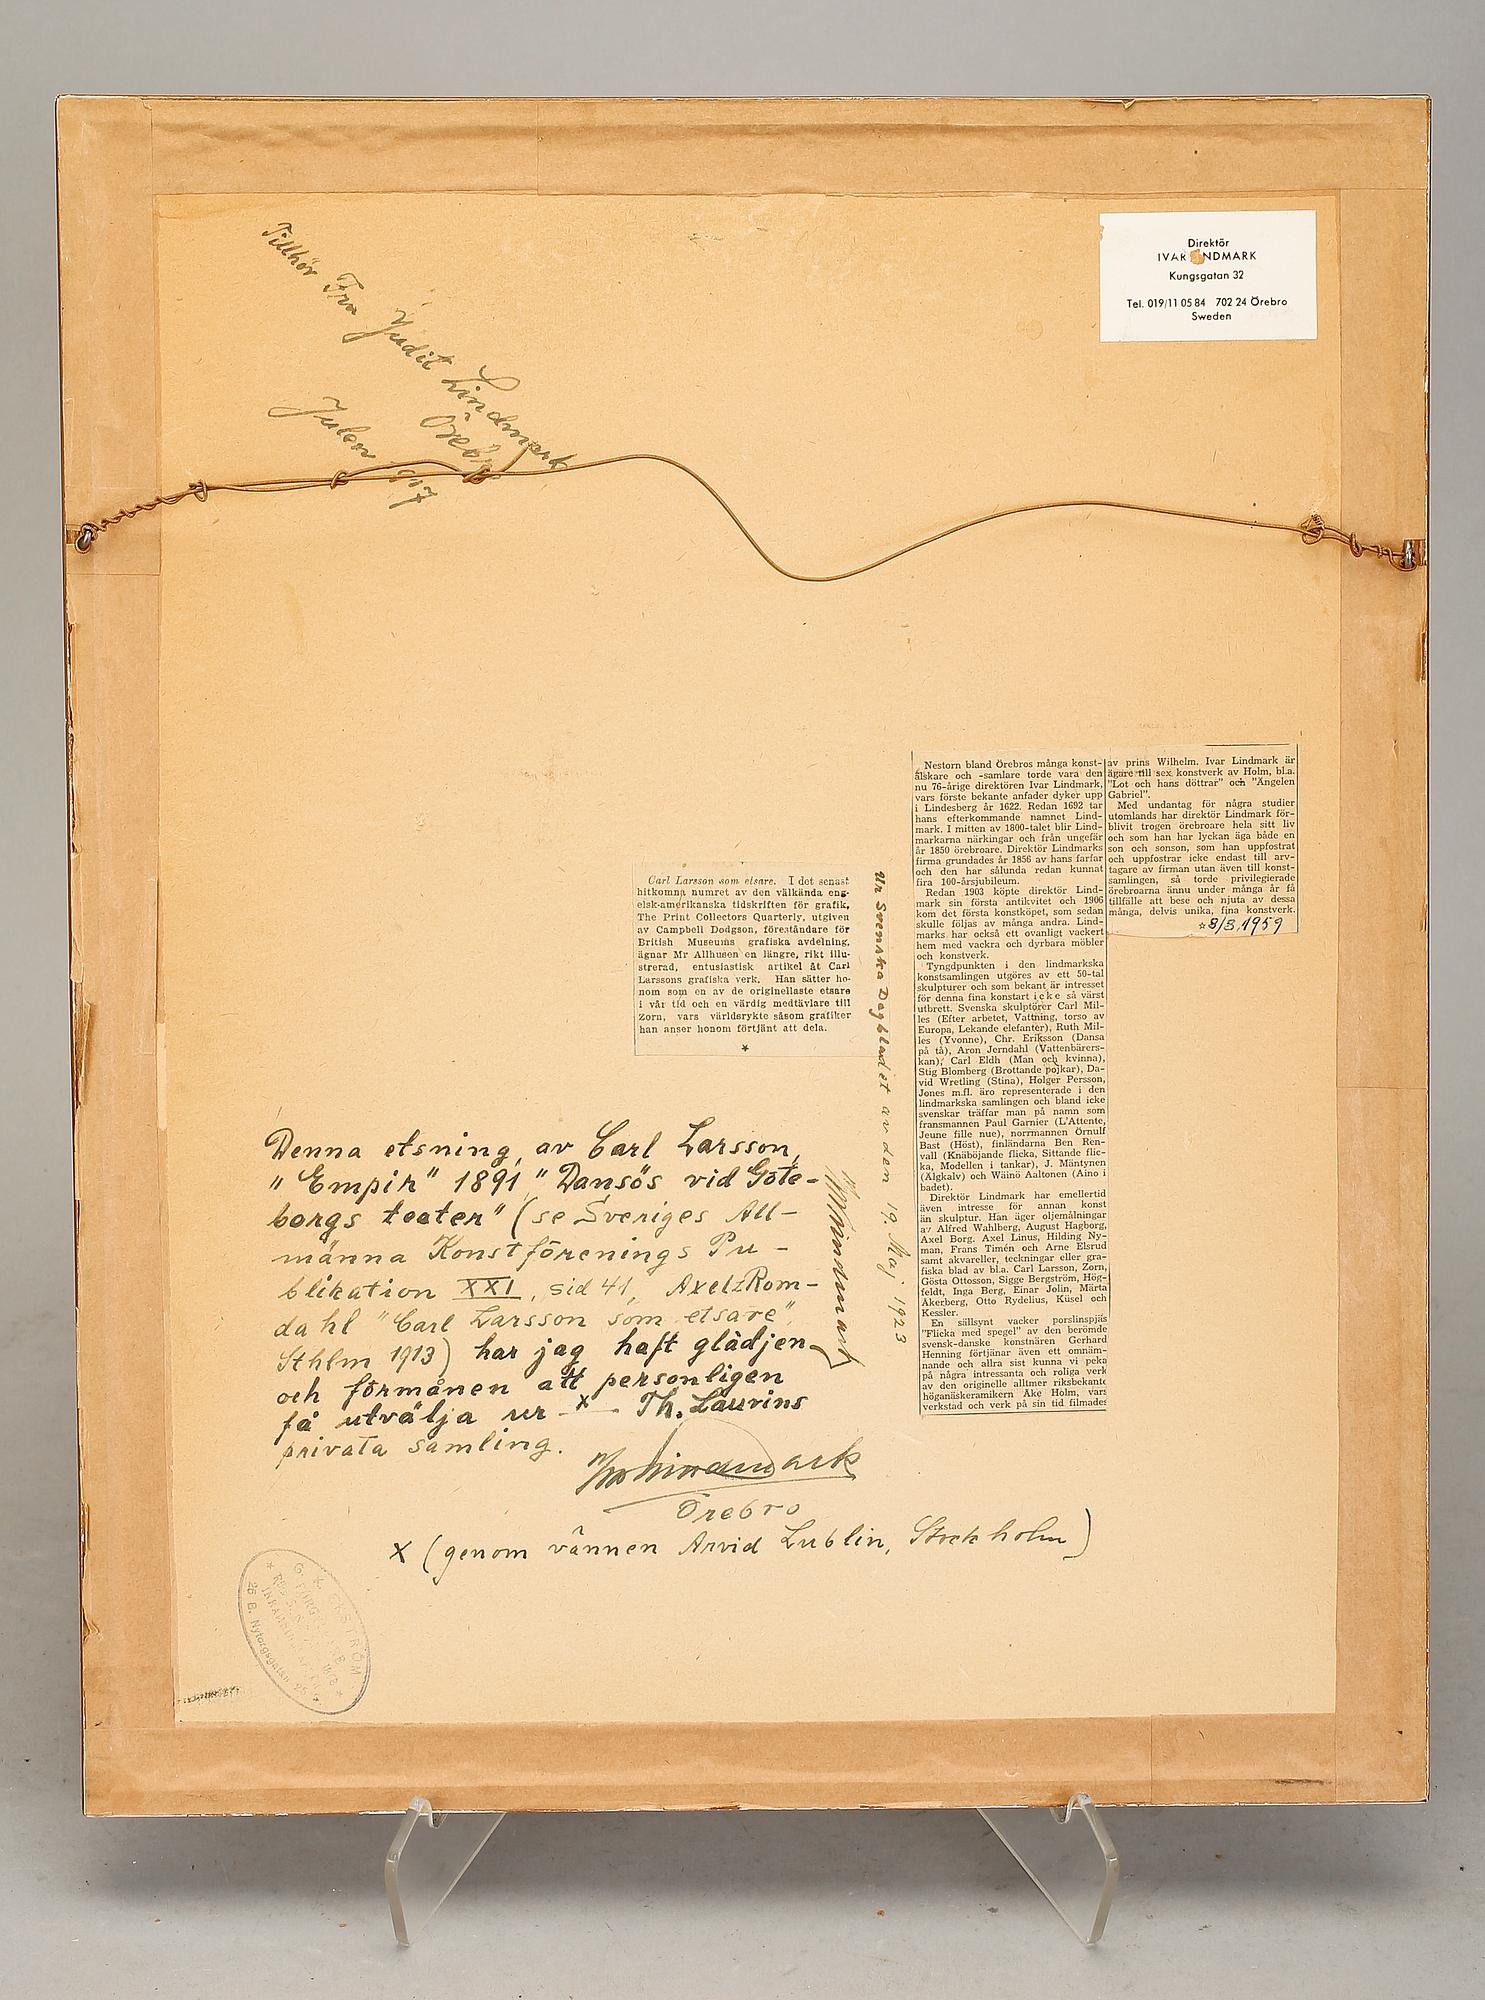 Tillhör Fru Judit Lindmark
Örebro
Julen
Direktör
IVAR NDMARK
Kungsgatan 32
Tel. 019/11 05 84 702 24 Örebro
Sweden
Carl Larsson som etsare. I det senast
hitkomna numret av den välkända eng-
elsk-amerikanska tidskriften för grafik,
The Print Collectors Quarterly, utgiven
av Campbell Dodgson, föreståndare för
British Museums grafiska avdelning,
ägnar Mr Allhusen en längre, rikt illu-
strerad, entusiastisk artikel åt Carl
Larssons grafiska verk. Han sätter ho-
nom som en av de originellaste etsare
i vår tid och en värdig medtävlare till
Zorn, vars världsrykte såsom grafiker
han anser honom förtjänt att dela.
Ur Svenska Dagbladet av den 19. Maj 1923
Nestorn bland Örebros många konst-
älskare och -samlare torde vara den
nu 76-årige direktören Ivar Lindmark,
vars förste bekante anfader dyker upp
i Lindesberg år 1622. Redan 1692 tar
hans efterkommande namnet Lind-
mark. I mitten av 1800-talet blir Lind-
markarna närkingar och från ungefär
år 1850 örebroare. Direktör Lindmarks
firma grundades år 1856 av hans farfar
och den har sålunda redan kunnat
fira 100-årsjubileum.
Redan 1903 köpte direktör Lind-
mark sin första antikvitet och 1906
kom det första konstköpet, som sedan
skulle följas av många andra. Lind-
marks har också ett ovanligt vackert
hem med vackra och dyrbara möbler
och konstverk.
Tyngdpunkten i den lindmarkska
konstsamlingen utgöres av ett 50-tal
skulpturer och som bekant är intresset
för denna fina konstart icke så värst
utbrett. Svenska skulptörer Carl Mil-
les (Efter arbetet, Vattning, torso av
Europa, Lekande elefanter), Ruth Mil-
les (Yvonne), Chr. Eriksson (Dansa
på tå), Aron Jerndahl (Vattenbärers-
kan), Carl Eldh (Man och kvinna),
Stig Blomberg (Brottande pojkar), Da-
vid Wretling (Stina), Holger Persson,
Jones m.fl. äro representerade i den
lindmarkska samlingen och bland icke
svenskar träffar man på namn som
fransmannen Paul Garnier (L'Attente,
Jeune fille nue), norrmannen Örnulf
Bast (Höst), finländarna Ben Ren-
vall (Knäböjande flicka, Sittande flic-
ka, Modellen i tankar), J. Mäntynen
(Älgkalv) och Wäinö Aaltonen (Aino i
badet).
Direktör Lindmark har emellertid
även intresse för annan konst
än skulptur. Han äger oljemålningar
av Alfred Wahlberg, August Hagborg,
Axel Borg, Axel Linus, Hilding Ny-
man, Frans Timén och Arne Elsrud
samt akvareller, teckningar eller gra-
fiska blad av bl.a. Carl Larsson, Zorn,
Gösta Ottosson, Sigge Bergström, Hög-
feldt, Inga Berg, Einar Jolin, Märta
Åkerberg, Otto Rydelius, Küsel och
Kessler.
En sällsynt vacker porslinspjäs
"Flicka med spegel" av den berömde
svensk-danske konstnären Gerhard
Henning förtjänar även ett omnäm-
nande och allra sist kunna vi peka
på några intressanta och roliga verk
av den originelle alltmer riksbekante
höganäskeramikern Åke Holm, vars
verkstad och verk på sin tid filmades
av prins Wilhelm. Ivar Lindmark är
ägare till sex konstverk av Holm, bl.a.
"Lot och hans döttrar" och "Ängelen
Gabriel".
Med undantag för några studier
utomlands har direktör Lindmark för-
blivit trogen örebroare hela sitt liv
och som han har lyckan äga både en
son och sonson, som han uppfostrat
och uppfostrar icke endast till arv-
tagare av firman utan även till konst-
samlingen, så torde privilegierade
örebroarna ännu under många år få
tillfälle att bese och njuta av dessa
många, delvis unika, fina konstverk.
8/3.1959
Denna etsning, av Carl Larsson,
"Empir" 1891 "Dansös vid Göte-
borgs teater" (se Sveriges All-
männa Konstförenings Pu-
blikation XXI, sid 41, Axel L Rom-
dahl "Carl Larsson som etsare",
Sthlm 1913) har jag haft glädjen
och förmånen att personligen
få utvälja ur x Th. Laurins
privata samling.
Lindmark
Lindmark
Örebro
x (genom vännen Arvid Lublin, Stockholm)
G. K. EKSTRÖM
26 B. Nytorgsgatan